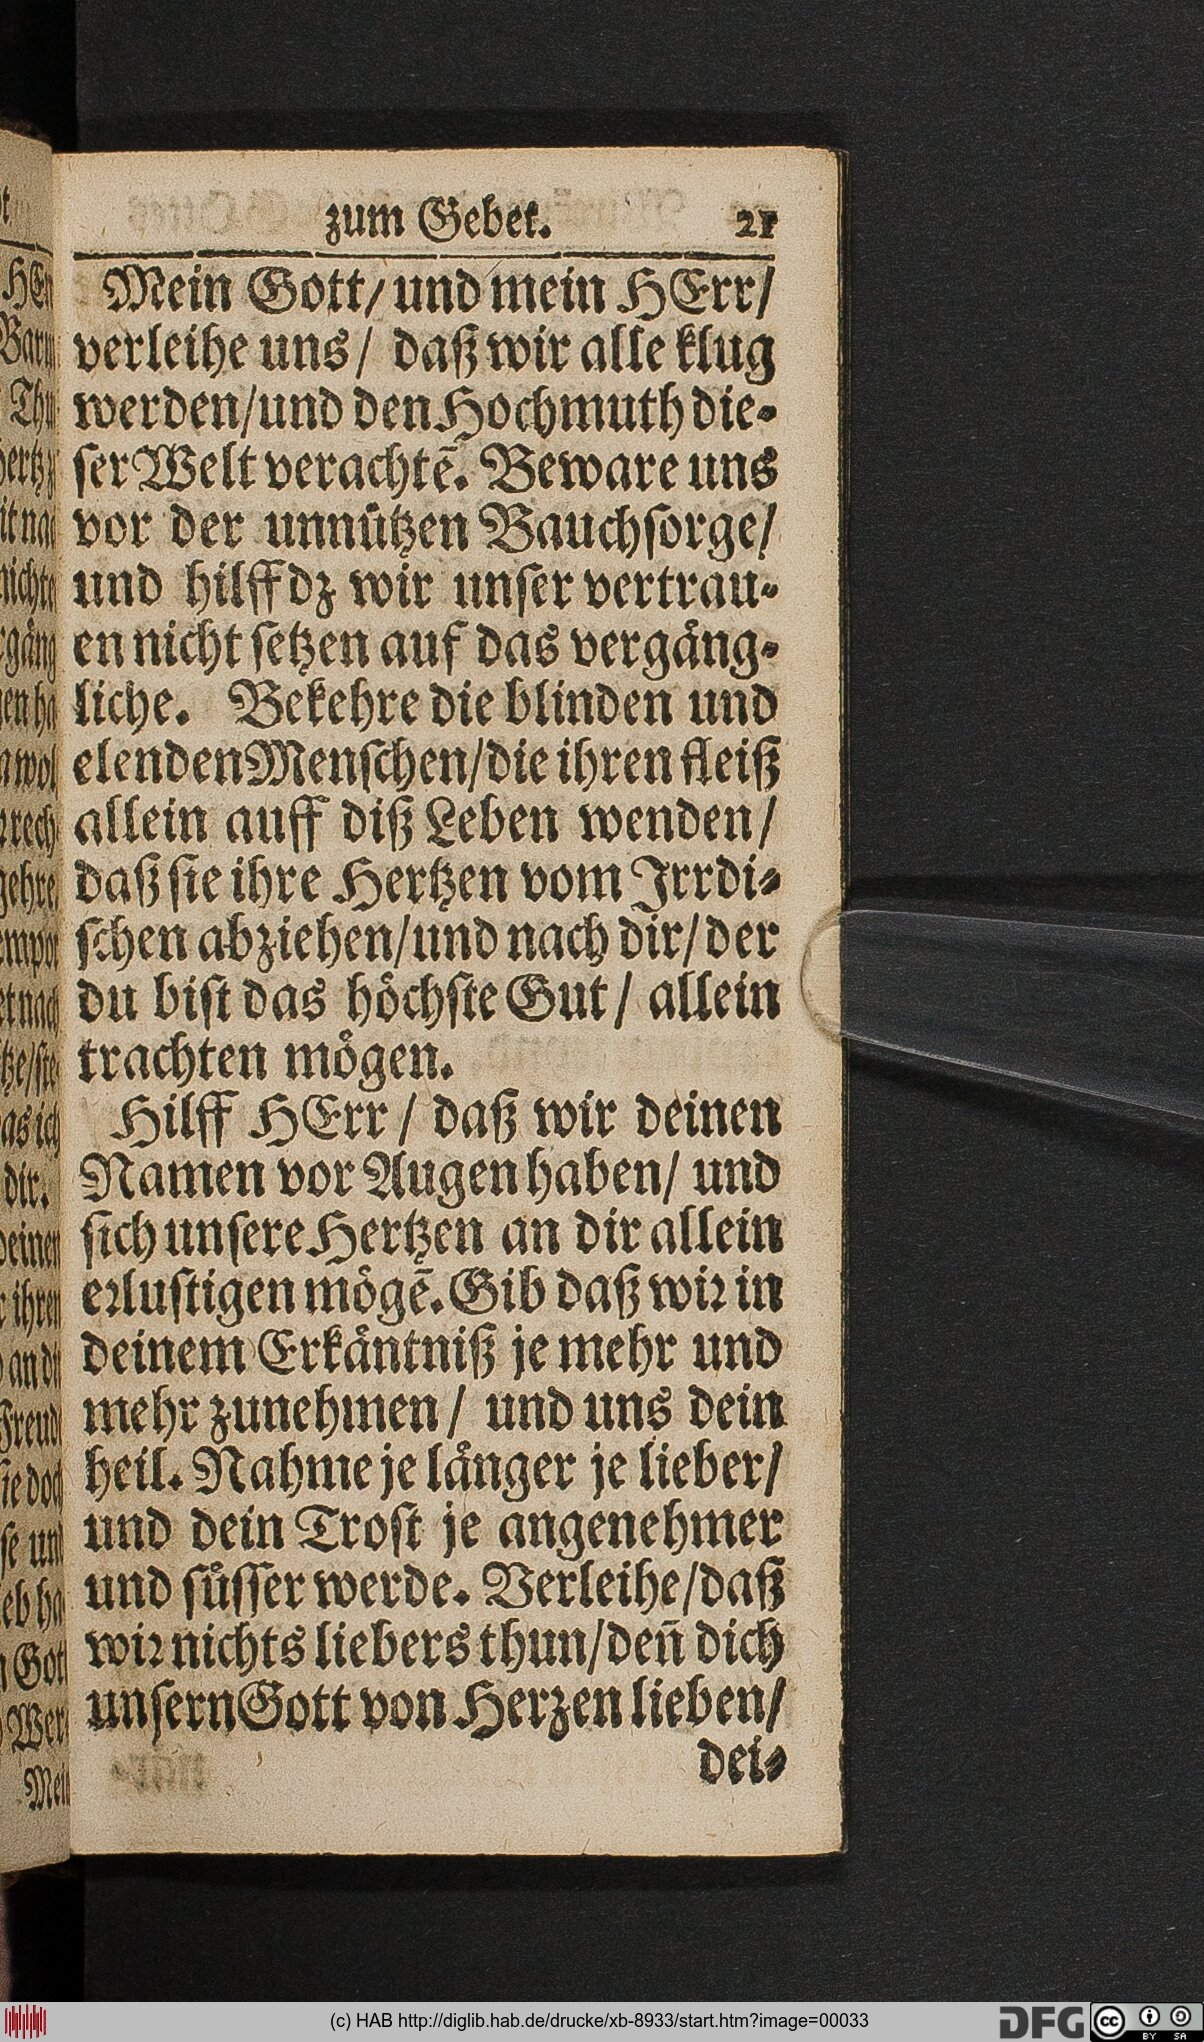 zum Gebet. 21
Mein Gott/ und mein HErr/
verleihe uns/ daß wir alle klug
werden/und den Hochmuth die-
ser Welt verachtẽ. Beware uns
vor der unnützen Bauchsorge/
und hilff dz wir unser vertrau-
en nicht setzen auf das vergäng-
liche. Bekehre die blinden und
elenden Menschen/die ihren fleiß
allein auff diß Leben wenden/
daß sie ihre Hertzen vom Irrdi-
schen abziehen/und nach dir/der
du bist das höchste Gut/ allein
trachten mögen.
Hilff HErr/ daß wir deinen
Namen vor Augen haben/ und
sich unsere Hertzen an dir allein
erlustigen mögẽ. Gib daß wir in
deinem Erkäntniß je mehr und
mehr zunehmen/ und uns dein
heil. Nahme je länger je lieber/
und dein Trost je angenehmer
und süsser werde. Verleihe/daß
wir nichts liebers thun/den̄ dich
unsern Gott von Herzen lieben/
dei-
(c) HAB http://diglib.hab.de/drucke/xb-8933/start.htm?image=00033
DFG
cc BY SA